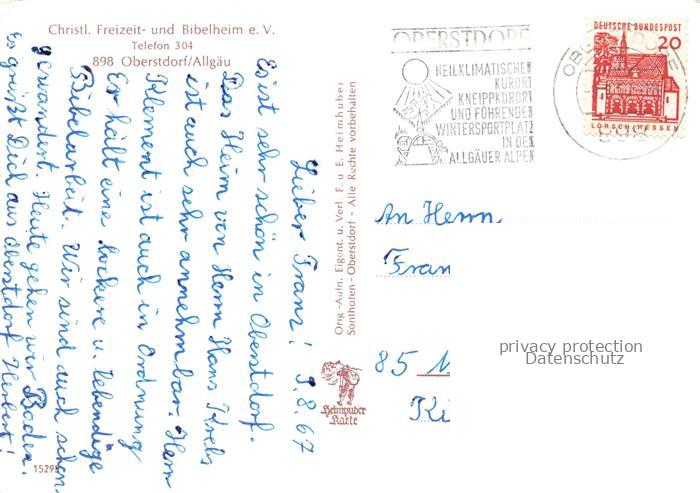 Christl. Freizeit- und Bibelheim e. V.
Telefon 304
898 Oberstdorf/Allgäu
Lieber Franz! 9.8.67
Es ist sehr schön in Oberstdorf.
Das Heim von Herrn Hans Krebs
ist auch sehr annehmbar. Herr
Klement ist auch in Ordnung
Er hält eine lockere u. lebendige
Bibelarbeit. Wir sind auch schon
gewandert. Heute gehen wir Baden.
Es grüßt Dich aus Oberstdorf Herbert!
15295
Orig.-Aufn. Eigent. u. Verl. F. u. E. Heimhuber
Sonthofen-Oberstdorf - Alle Rechte vorbehalten
Heimhuber
Karte
OBERSTDORF
HEILKLIMATISCHER
KURORT
KNEIPPKURORT
UND FÜHRENDER
WINTERSPORTPLATZ
IN DEN
ALLGÄUER ALPEN
DEUTSCHE BUNDESPOST
20
LORSCH/HESSEN
An Herrn
Fran
85 N
Ki
privacy protection
Datenschutz